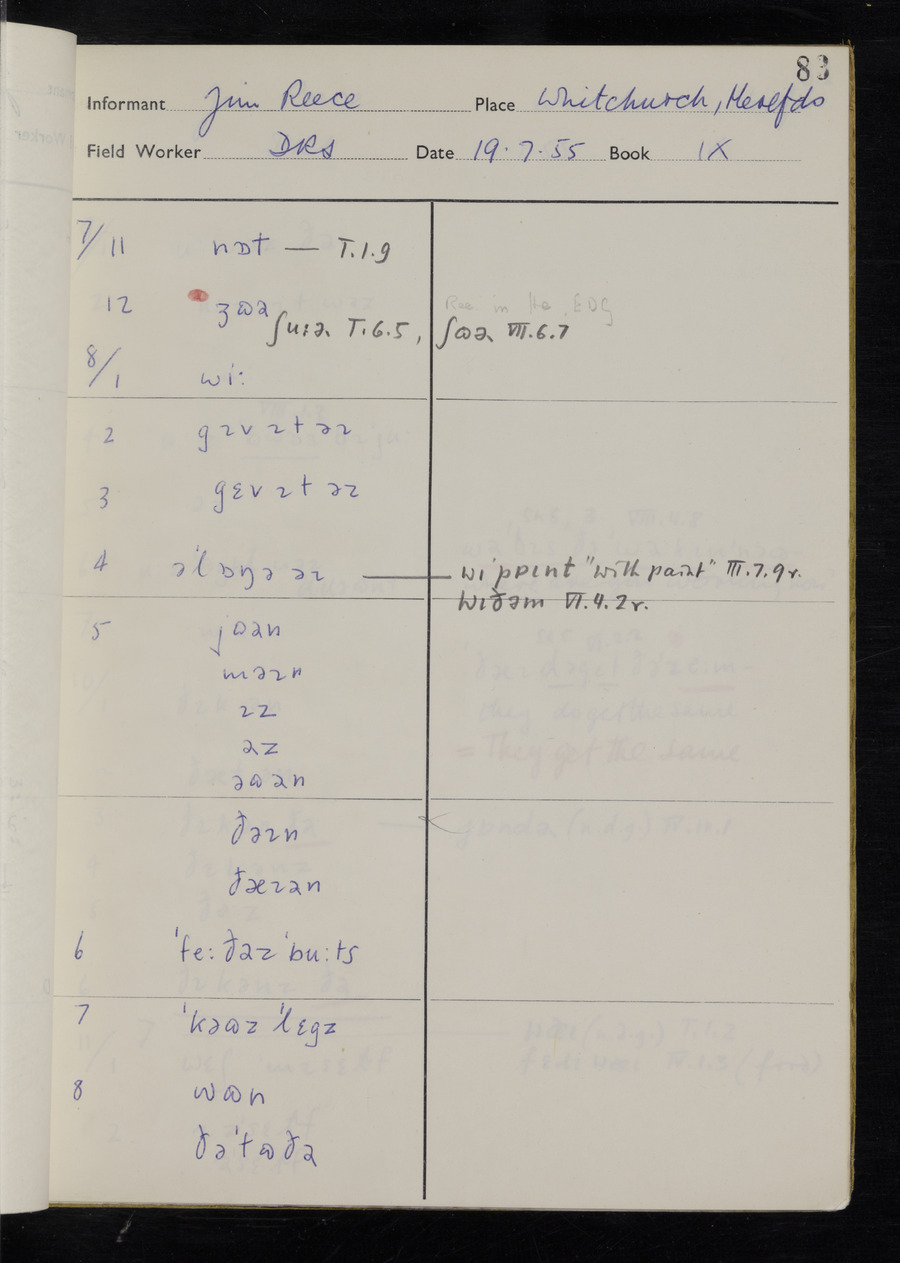 83
Informant Jim Reece Place Whitchurch, Herefds
Field Worker DRS Date 19.7.55 Book IX
7/11 nɒt — T.1.9
12 ʒɷə Rec. in He, EDG
ʃuːəɹ T.6.5, ʃɷəɹ VII.6.7
8/1 wiː
2 gɪv ɪt əɪ
3 gɛv ɪt əɪ
4 əˈlɒŋə əɪ — wiˈpɒɪnt "with paint" III.7.9r.
wɪðəm VI.4.2r.
5 jɷəɹn
məɪn
ɪz
əɹz
əɷəɹn
ðəɪn
ðæɪəɹn
6 ˈfeːðəɹz ˈbuːts
7 ˈkəɷz ˈlɛgz
8 wɷn
ðəˈtɷðəɹ